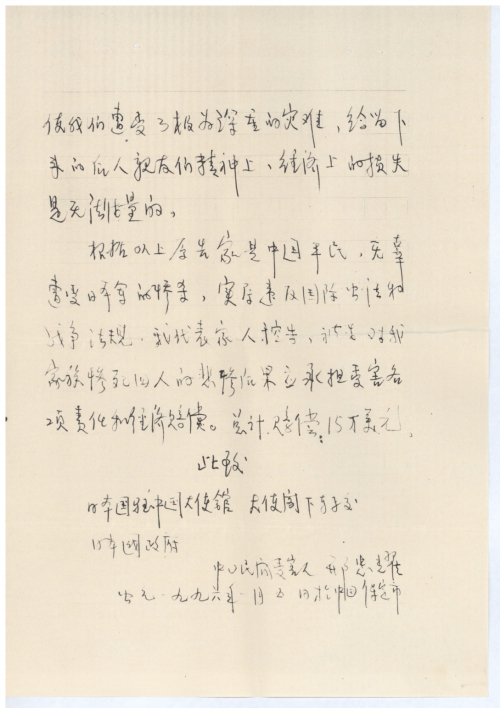 使我们遭受了极为深重的灾难，给留下
来的后人亲友们精神上、经济上的损失
是无法估量的。
根据以上原告家是中国平民，无辜
遭受日本军的惨杀，实属违反国际公法和
战争法规。我代表家人控告，被告对我
家族惨死四人的悲惨后果应承担受害各
项责任和经济赔偿。总计赔偿：15万美元。
此致
日本国驻中国大使馆 大使阁下转交
日本国政府
中国民间受害人 邢
公元一九九六年一月五日于中国保定市